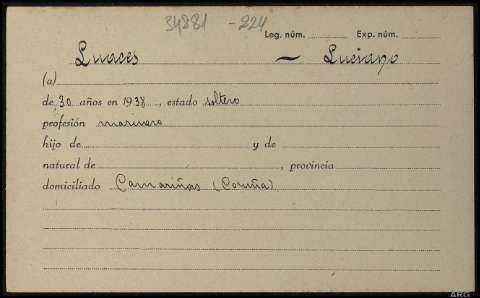 34281 - 224
Leg. núm. Exp. núm.
Luaces - Luciano
(a)
de 30 años en 1938, estado soltero
profesión marinero
hijo de y de
natural de , provincia
domiciliado Camariñas (Coruña)
ARG